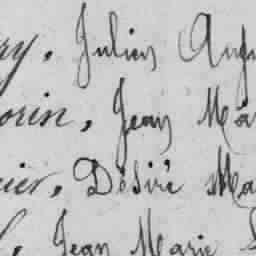 ry, Julien Augu
orin, Jean Mar
ier, Désiré Ma
l, Jean Marie